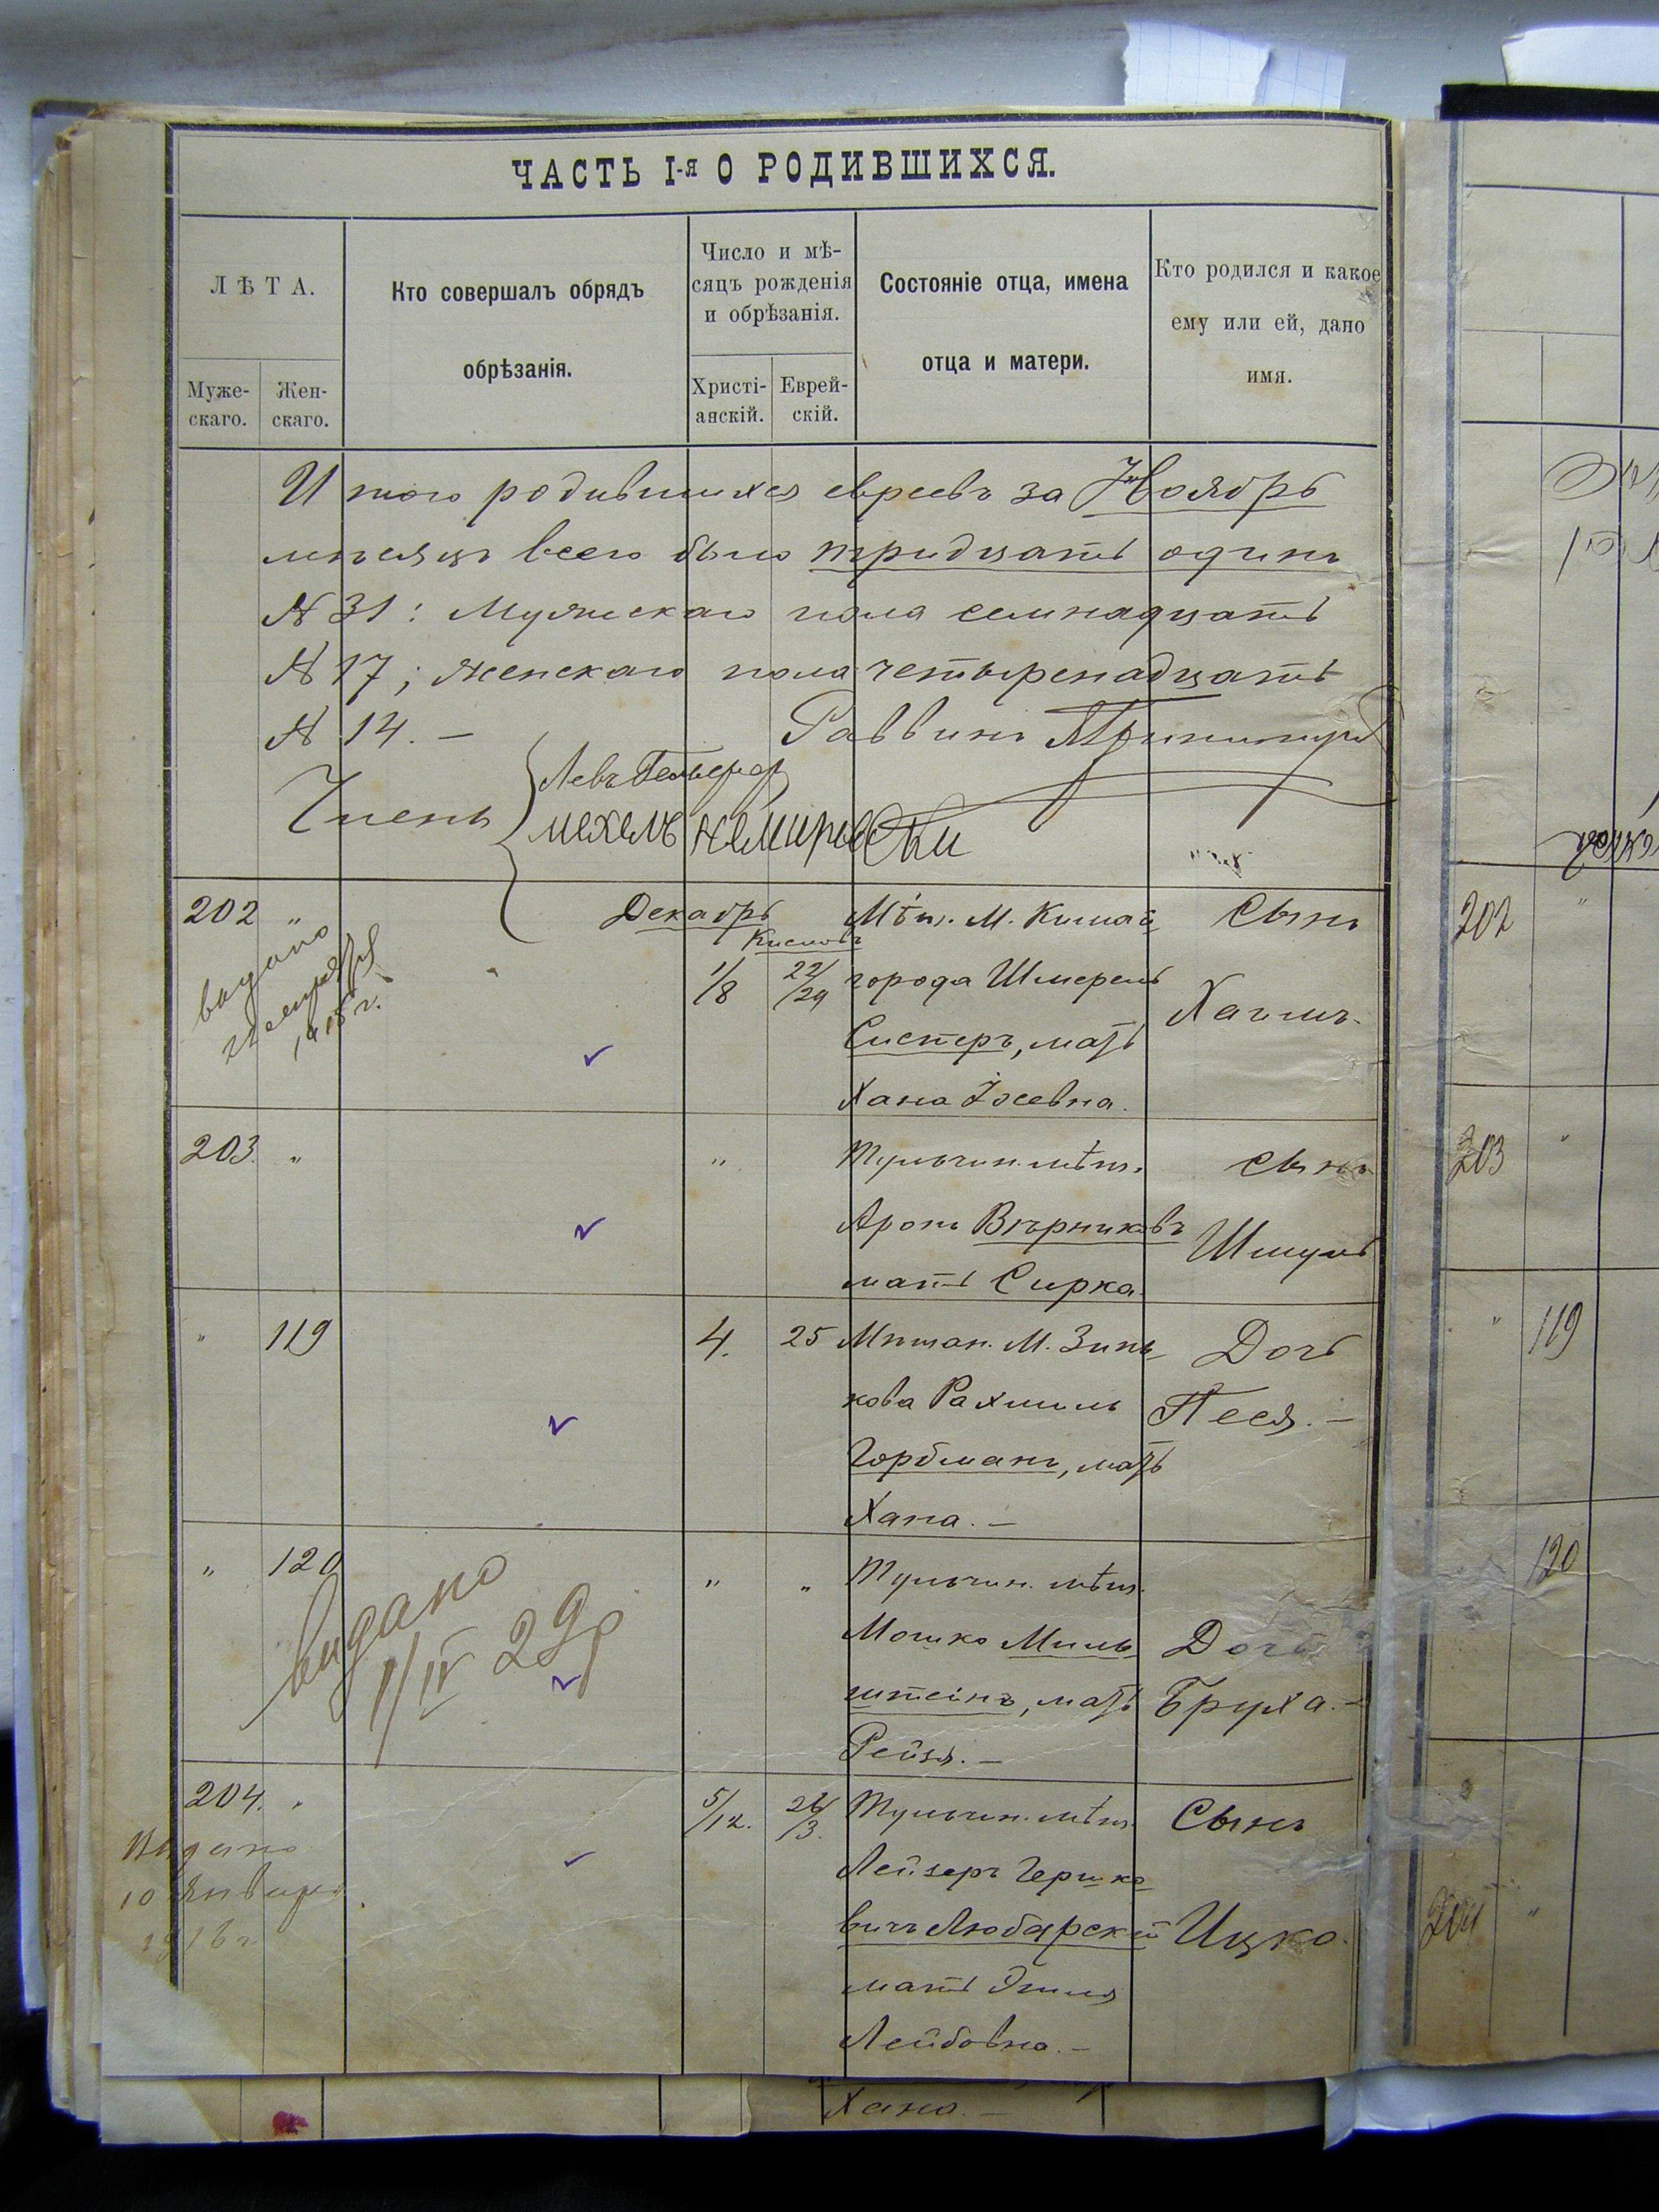 ЧАСТЬ I-я О РОДИВШИХСЯ.
ЛѢТА.
Муже-
скаго.
Жен-
скаго.
Кто совершалъ обрядъ
обрѣзанія.
Число и мѣ-
сяцъ рожденія
и обрѣзанія.
Христі-
анскій.
Еврей-
скій.
Состояніе отца, имена
отца и матери.
Кто родился и какое
ему или ей, дано
имя.
Итого родившихся евреевъ за Ноябрь
мѣсяцъ всего было тридцать одинъ
№ 31: Мужескаго пола семнадцать
№ 17; женскаго пола четыренадцать
№ 14. —
Раввинъ
Члены
Левъ
мехелъ немировски
202 "
видано
1915 г.
Декабрь
Кислевъ
1/8 22/29
Мѣщ. М. Китай
города Шмерель
Систеръ, мать
Хана Іосевна.
Сынъ
Хаимъ.
203. "
"
Тульчин. мѣщ.
Аронъ Вѣрниковъ
мать Сирка
сынъ
Шмуль
" 119
4. 25
Мѣщан. М. Зинь-
кова Рахмиль
Горбманъ, мать
Хана. —
Дочь
Песя. —
" 120
видано
1/IV 29р
" "
Тульчин. мѣщ.
Мошко Миль-
штеинъ, мать
Рейзя. —
Дочь
Бруха. —
204. "
Видано
10 Января
1916 г.
5/12. 26/3.
Тульчин. мѣщ.
Лейзеръ Гершко-
вичъ Любарскій
мать Этля
Лейбовна. —
Сынъ
Ицко.
Хана. —
202 "
203 "
" 119
120
204 "